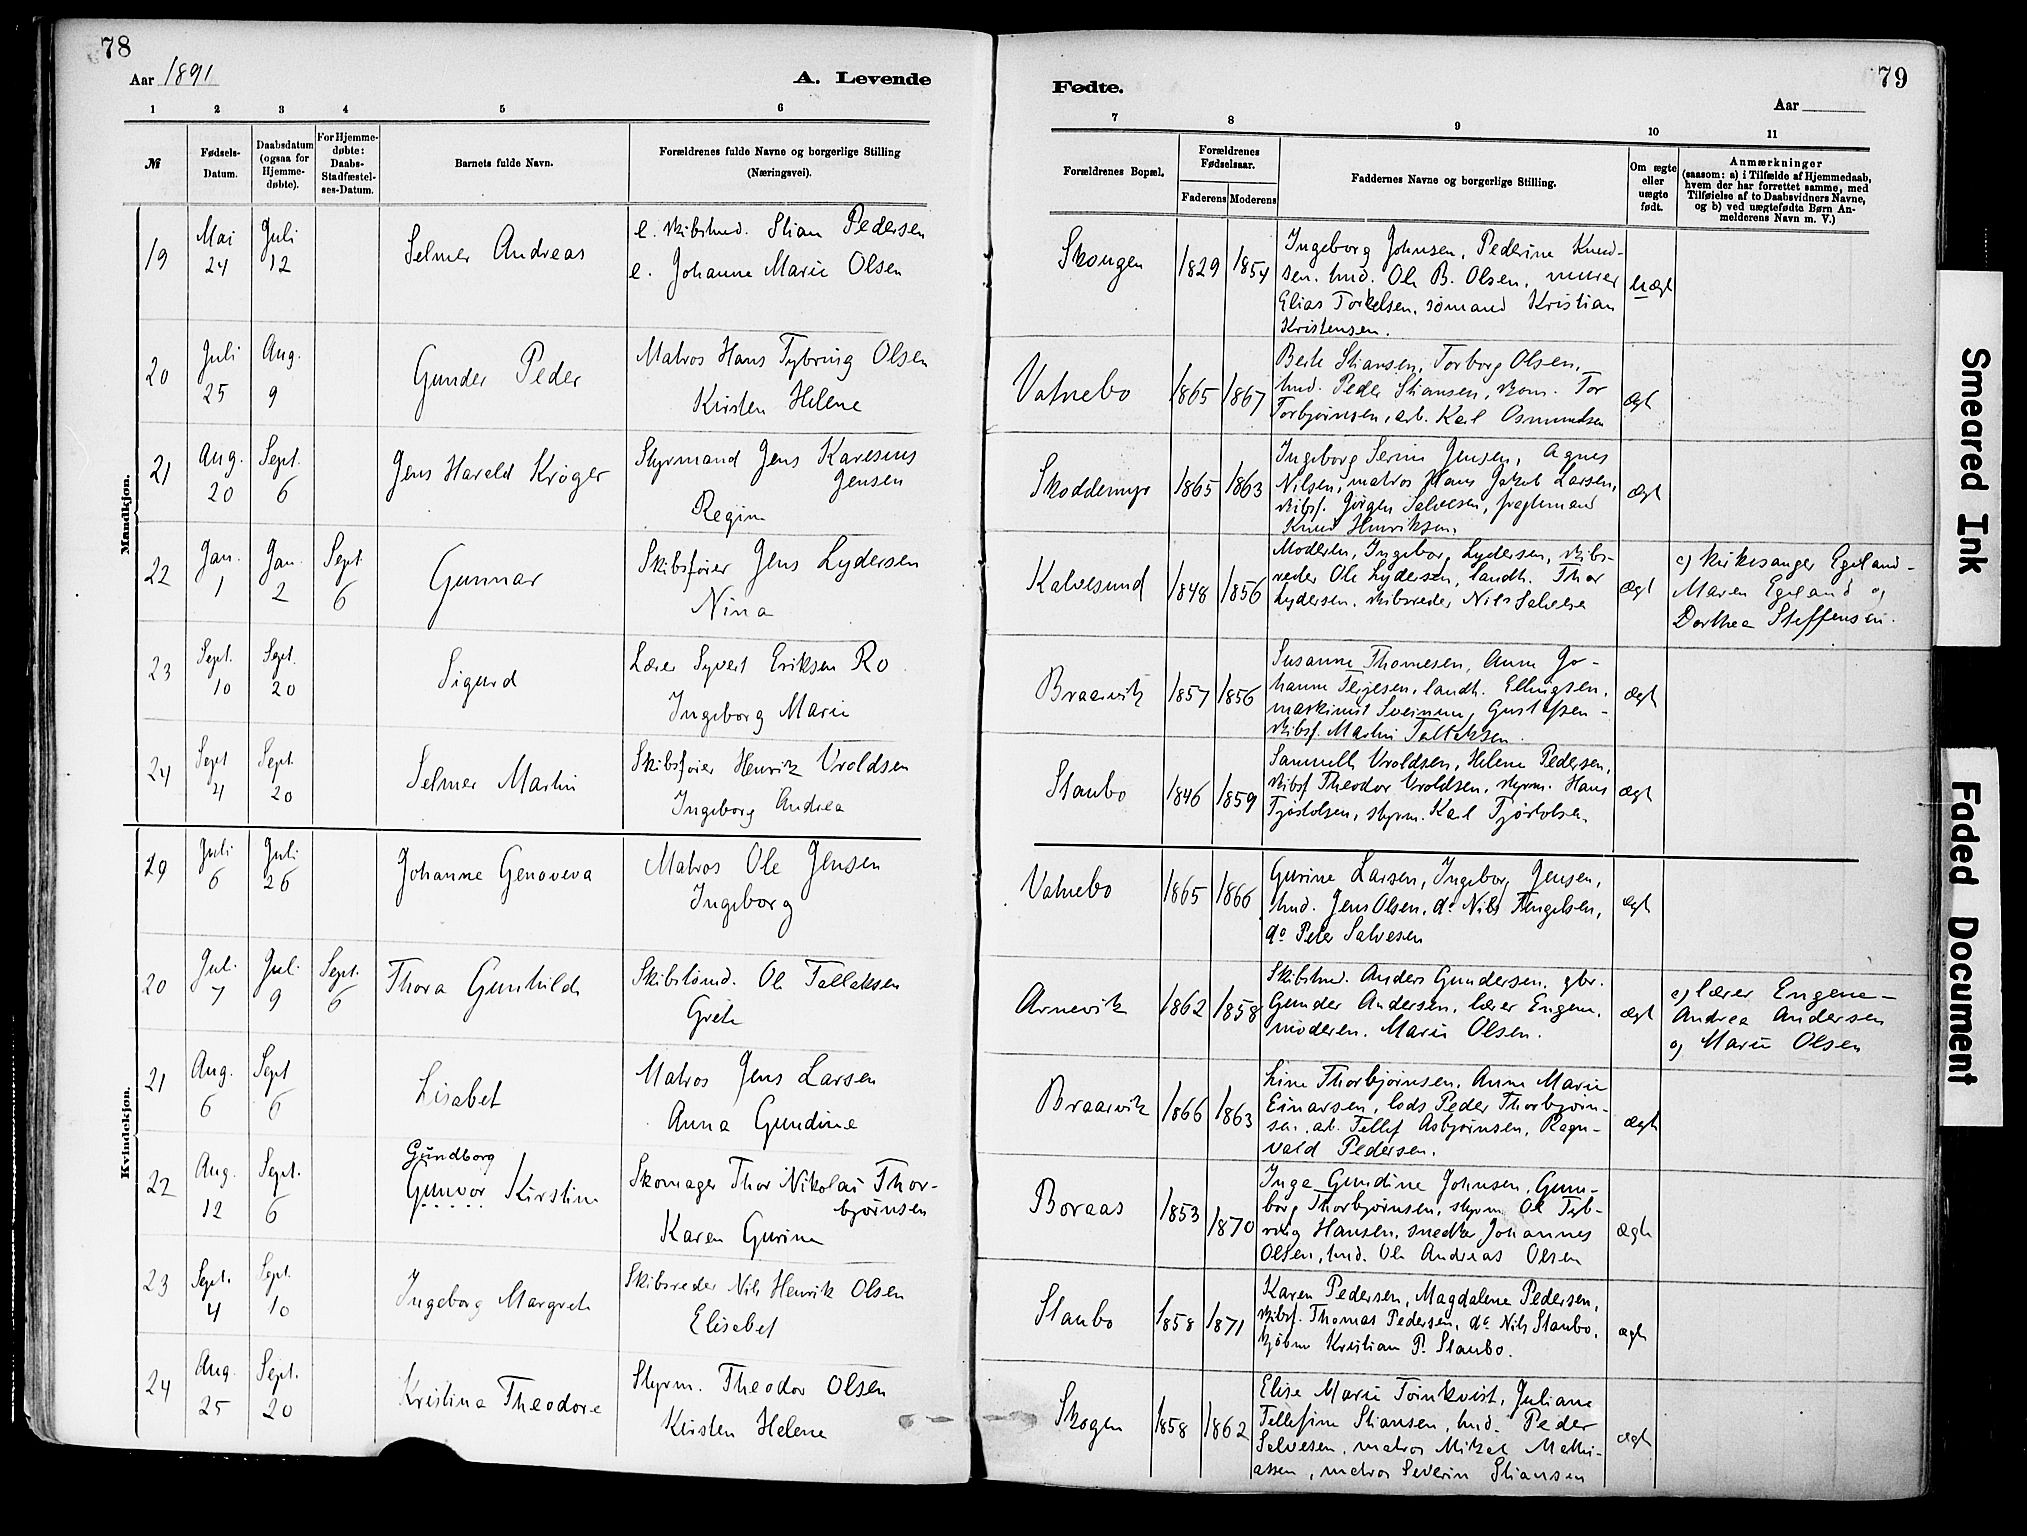 78
Aar 1891
A. Levende
1 2 3 4 5 6
№
Fødsels-
Datum.
Daabsdatum
(ogsaa for
Hjemme-
døbte).
For Hjemme-
døbte:
Daabs-
Stadfæstel-
ses-Datum.
Barnets fulde Navn.
Forældrenes fulde Navne og borgerlige Stilling
(Næringsvei).
Mandkjøn.
19 Mai 24 Juli 12 Selmer Andreas
e. skibstmd. Stian Pedersen
e. Johanne Marie Olsen
20 Juli 25 Aug. 9 Gunder Peder
Matros Hans Tybring Olsen
Kirsten Helene
21 Aug. 20 Sept. 6 Jens Harald Krøger
Styrmand Jens Karesius
Jensen
Regine
22 Jan. 1 Jan. 2 Sept. 6 Gunnar
Skibsfører Jens Lydersen
Nina
23 Sept. 10 Sept. 20 Sigurd
Lærer Syvert Eriksen Ro
Ingeborg Marie
24 Sept 4 Sept. 20 Selmer Martin
Skibsfører Henrik Vroldsen
Ingeborg Andrea
Kvindekjøn.
29 Juli 6 Juli 26 Johanne Genoveva
Matros Ole Jensen
Ingeborg
20 Juli 7 Juli 9 Sept. 6 Thora Gunhilde
Skibstømd. Ole Tallaksen
Grete
21 Aug. 6 Sept 6 Lisabet
Matros Jens Larsen
Anna Gundine
22 Aug. 12 Sept. 6 Gundborg
Gunvor Kirstine
Skomager Thor Nikolai Thor-
bjørnsen
Karen Gurine
23 Sept. 4 Sept. 10 Ingeborg Margrete
Skibsreder Nils Henrik Olsen
Elisabet
24 Aug. 25 Sept. 20 Kristine Theodore
Styrm. Theodor Olsen
Kirsten Helene
79
Fødte.
Aar
7 8 9 10 11
Forældrenes Bopæl.
Forældrenes
Fødselsaar.
Faderens Moderens
Faddernes Navne og borgerlige Stilling.
Om ægte
eller
uægte
født.
Anmærkninger
(saasom: a) i Tilfælde af Hjemmedaab,
hvem der har forrettet samme, med
Tilføielse af to Daabsvidners Navne,
og b) ved uægtefødte Børn An-
melderens Navn m. V.)
Skougen 1829 1854
Ingeborg Johnsen, Pederine Knud-
sen, tmd. Ole B. Olsen, murer
Elias Torkelsen, sømand Kristian
Kristensen.
uægt
Vatnebo 1865 1867
Berte Stiansen, Torborg Olsen,
tmd. Peder Stiansen, skom. Tor
Torbjørnsen, arb. Karl Osmundsen
ægt
Skoddemyr 1865 1863
Ingeborg Serine Jensen, Agnes
Nilsen, matros Hans Jakob Larsen,
skibsf. Jørgen Salvesen, fragtemand
Knud Henriksen.
ægt
Kalvesund 1848 1856
Moderen, Ingeborg Lydersen, skibs-
reder Ole Lydersen, landh. Thor
Lydersen, skibsreder Nils Salvese
ægt
a) kirkesanger Egeland-
Maren Egeland og
Dorthea Steffensen.
Braarvik 1857 1856
Susanne Thomesen, Anne Jo-
hanne Terjesen, landh. Ellingsen,
maskinist Gustafsen-
skibsf. Martin Tallaksen.
ægt
Staubo 1846 1859
Vroldsen, Helene Pedersen,
skibsf Theodor Vroldsen, styrm. Hans
Tjøstolsen, styrm. Karl Tjøstolsen
ægt
Vatnebo 1865 1866
Gurine Larsen, Ingeborg Jensen,
tmd. Jens Olsen, do Nils Tengelsen,
do Peter Salvesen
ægt
Arnevik 1862 1858
Skibstmd. Anders Gundersen, gbr.
Gunder Andersen, lærer Engene,
moderen, Marie Olsen.
ægt
a) lærer Engene-
Andrea Andersen
og Marie Olsen
Braarvik 1866 1863
Line Thorbjørnsen, Anne Marie
Einarsen, lods Peder Thorbjørn-
sen, arb. Tellef Asbjørnsen, Ragn-
vald Pedersen.
ægt
Boraas 1853 1870
Inga Gundine Johnsen, Gun-
borg Thorbjørnsen, styrm Ole Tyb-
ring Hansen, snedker Johannes
Olsen, tmd. Ole Andreas Olsen
ægte
Staubo 1858 1871
Karen Pedersen, Magdalene Pedersen,
skibsf. Thomas Pedersen, do Nils Staubo,
kjøbm Kristian P. Staubo.
ægt
Skogen 1858 1862
Elise Marie Törnkvist, Juliane
Tellefine Stiansen, tmd. Peder
Salvesen, matros Mikal Mathi-
assen, matros Severin Stiansen
ægt
Smeared Ink
Faded Document